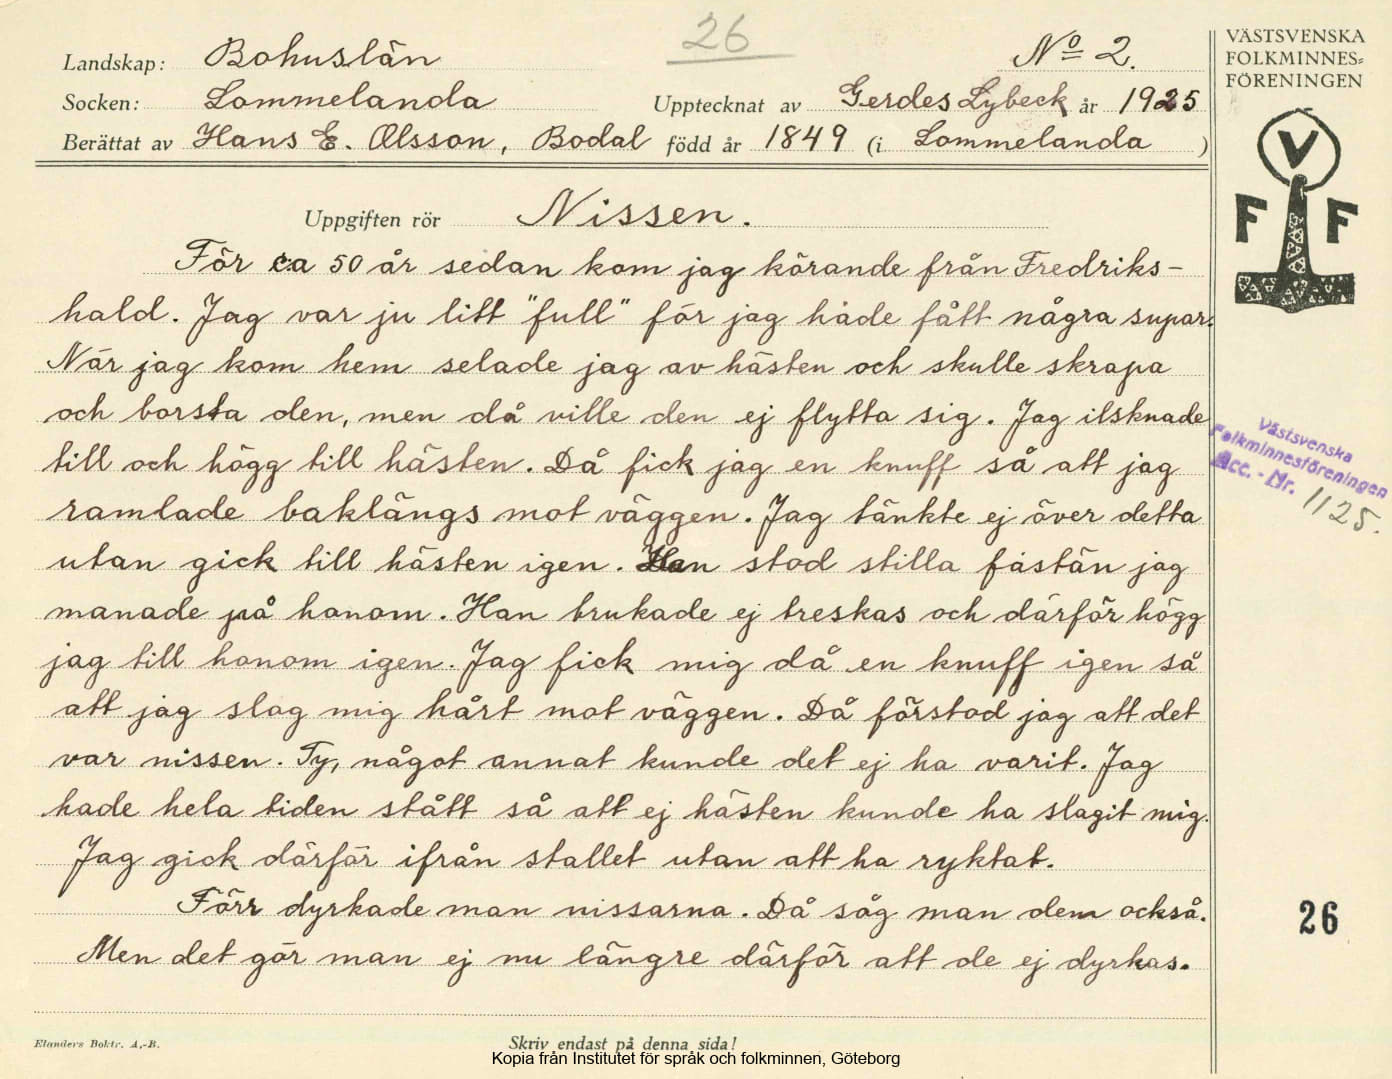 26
Landskap: Bohuslän
Nº 2.
VÄSTSVENSKA
FOLKMINNES=
FÖRENINGEN
Socken: Lommelanda
Upptecknat av Gerdes Lybeck år 1925
Berättat av Hans E. Olsson, Bodal född år 1849 (i Lommelanda )
V
F F
Uppgiften rör Nissen.
För ca 50 år sedan kom jag körande från Fredriks-
hald. Jag var ju litt "full" för jag hade fått några supar.
När jag kom hem selade jag av hästen och skulle skrapa
och borsta den, men då ville den ej flytta sig. Jag ilsknade
till och högg till hästen. Då fick jag en knuff så att jag
ramlade baklängs mot väggen. Jag tänkte ej över detta
utan gick till hästen igen. Han stod stilla fastän jag
manade på honom. Han brukade ej treskas och därför högg
jag till honom igen. Jag fick mig då en knuff igen så
att jag slog mig hårt mot väggen. Då förstod jag att det
var nissen. Ty, något annat kunde det ej ha varit. Jag
hade hela tiden stått så att ej hästen kunde ha slagit mig.
Jag gick därför ifrån stallet utan att ha ryktat.
Förr dyrkade man nissarna. Då såg man dem också.
Men det gör man ej nu längre därför att de ej dyrkas.
Västsvenska
Folkminnesföreningen
Acc. - Nr. 1125.
26
Elanders Boktr. A.-B.
Skriv endast på denna sida!
Kopia från Institutet för språk och folkminnen, Göteborg